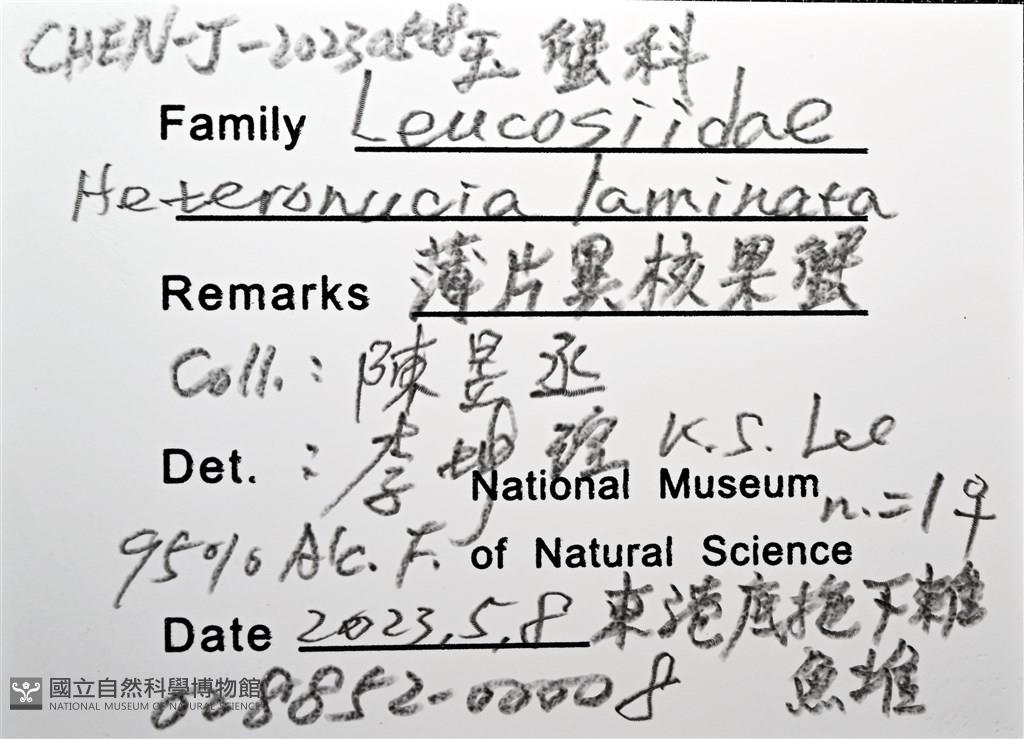 CHEN-J-20230508 玉蟹科
Family Leucosiidae
Heteronucia laminata
Remarks 薄片異核果蟹
Coll.: 陳昱丞
Det. : 李坤瑄 K.S. Lee
National Museum n.=1♀
95% Alc. F. of Natural Science
Date 2023.5.8 東港底拖下雜
魚堆
008852-00008
國立自然科學博物館
NATIONAL MUSEUM OF NATURAL SCIENCE